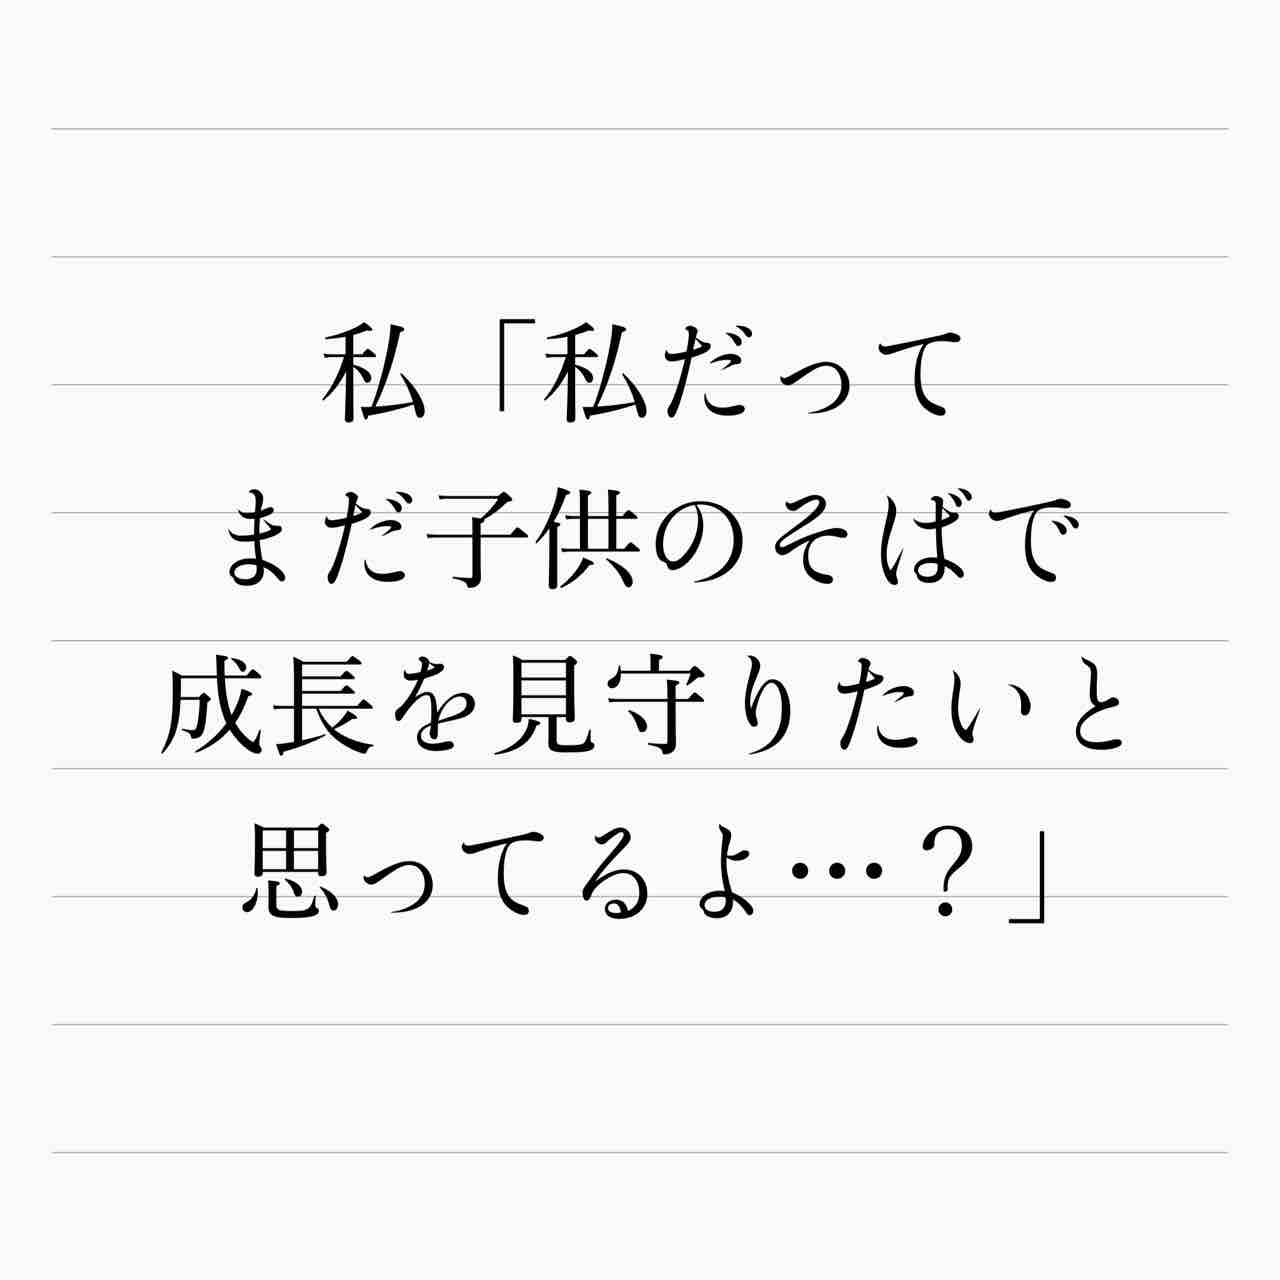 私「私だって
まだ子供のそばで
成長を見守りたいと
思ってるよ…？」